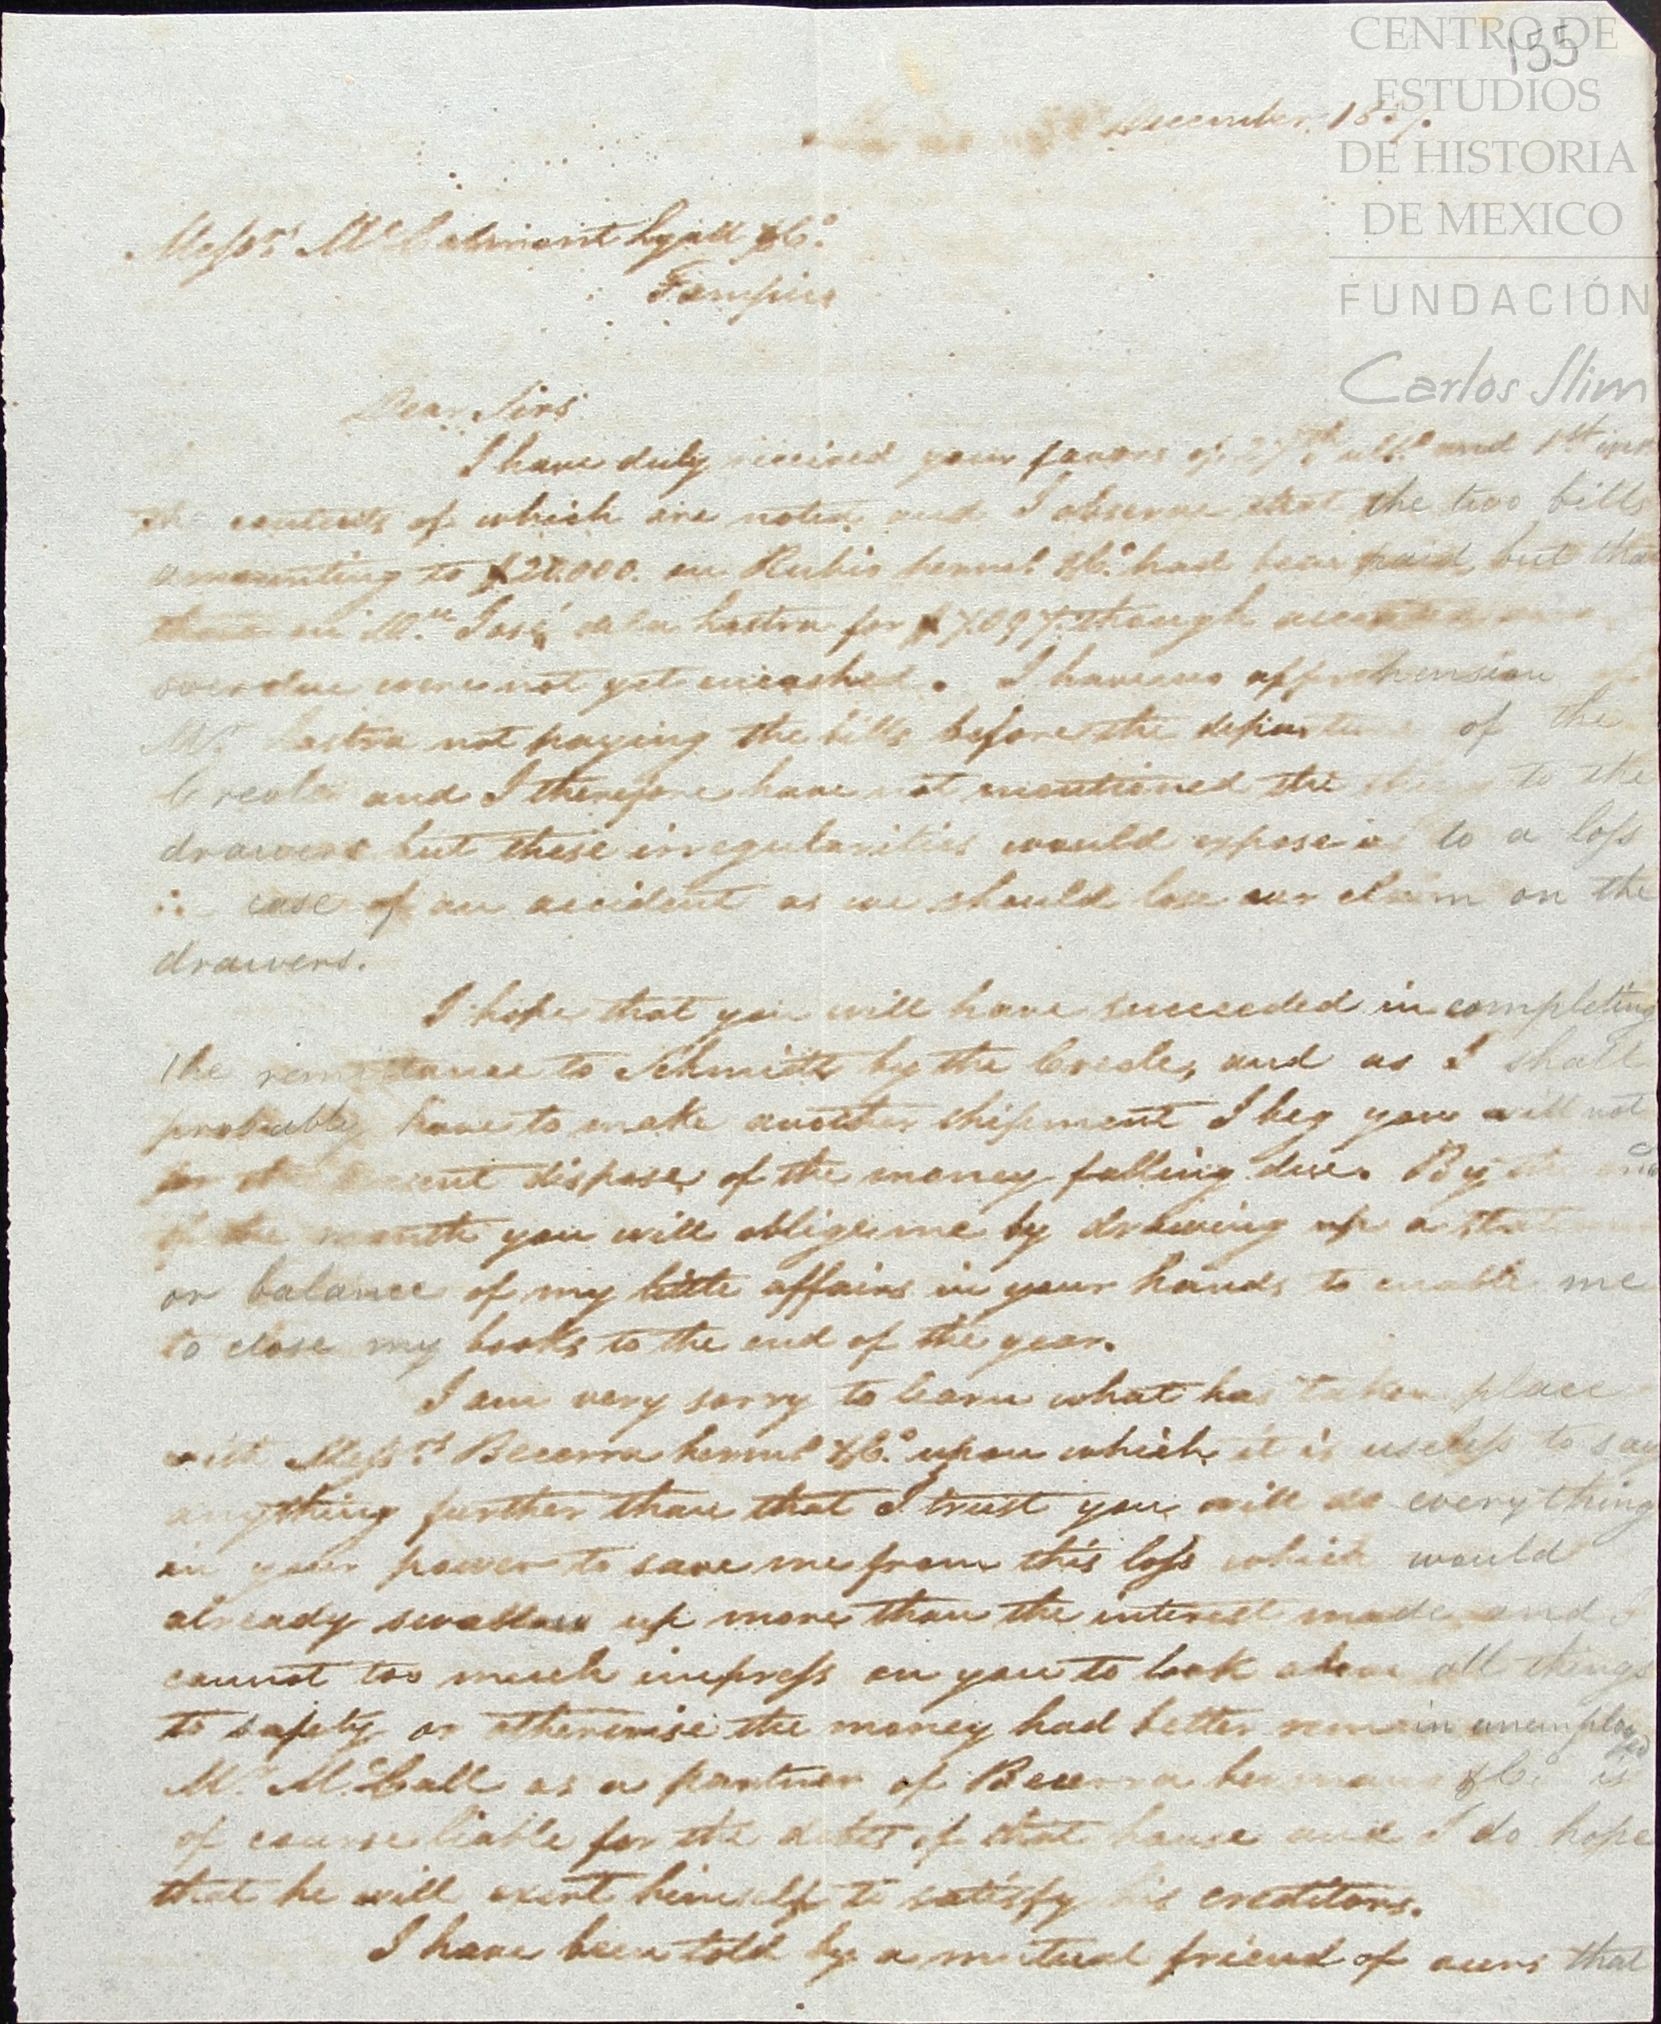 155
CENTRO DE
ESTUDIOS
DE HISTORIA
DE MEXICO
FUNDACIÓN
Carlos Slim
December 18
Messrs. McCalmont Lyall &Co.
Tampico
Dear Sirs
I have duly received your favors of 27th ulto. and 1st inst
the contents of which are noted and I observe that the two bills
amounting to $20.000. on Rubio hermo. &Co. had been paid, but that
those on Mel. José de la Lastra for $7.097. though accepted
overdue were not yet incashed. I have no apprehension of
Mr. Lastra not paying the bills before the departure of the
Creole and I therefore have not mentioned the thing to the
drawers but these irregularities would expose us to a loss
in case of an accident as we should lose our claim on the
drawers.
I hope that you will have succeeded in completing
the remittance to Schmidt by the Creole, and as I shall
probably have to make another shipment I beg you will not
for the present dispose of the money falling due. By the end
of the month you will oblige me by drawing up a
or balance of my little affairs in your hands to enable me
to close my books to the end of the year.
I am very sorry to learn what has taken place
with Messrs. Becerra hermo. &Co. upon which it is useless to say
anything further than that I trust you will do everything
in your power to save me from this loss which would
already swallow up more than the interest made, and I
cannot too much impress on you to look above all things
to safety or otherwise the money had better remain unemployed
Mr. McCall as a partner of Becerra hermanos &Co. is
of course liable for the debts of that house and I do hope
that he will exert himself to satisfy his creditors.
I have been told by a mutual friend of ours that